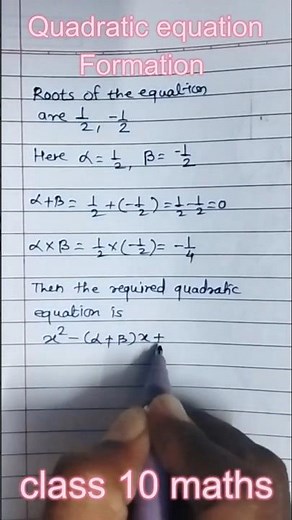 Quadratic equation
Formation
Roots of the equation
are 1/2, -1/2
Here α = 1/2, β = -1/2
α+β = 1/2 + (-1/2) = 1/2 - 1/2 = 0
α×β = 1/2 × (-1/2) = -1/4
Then the required quadratic
equation is
x² - (α+β)x +
class 10 maths